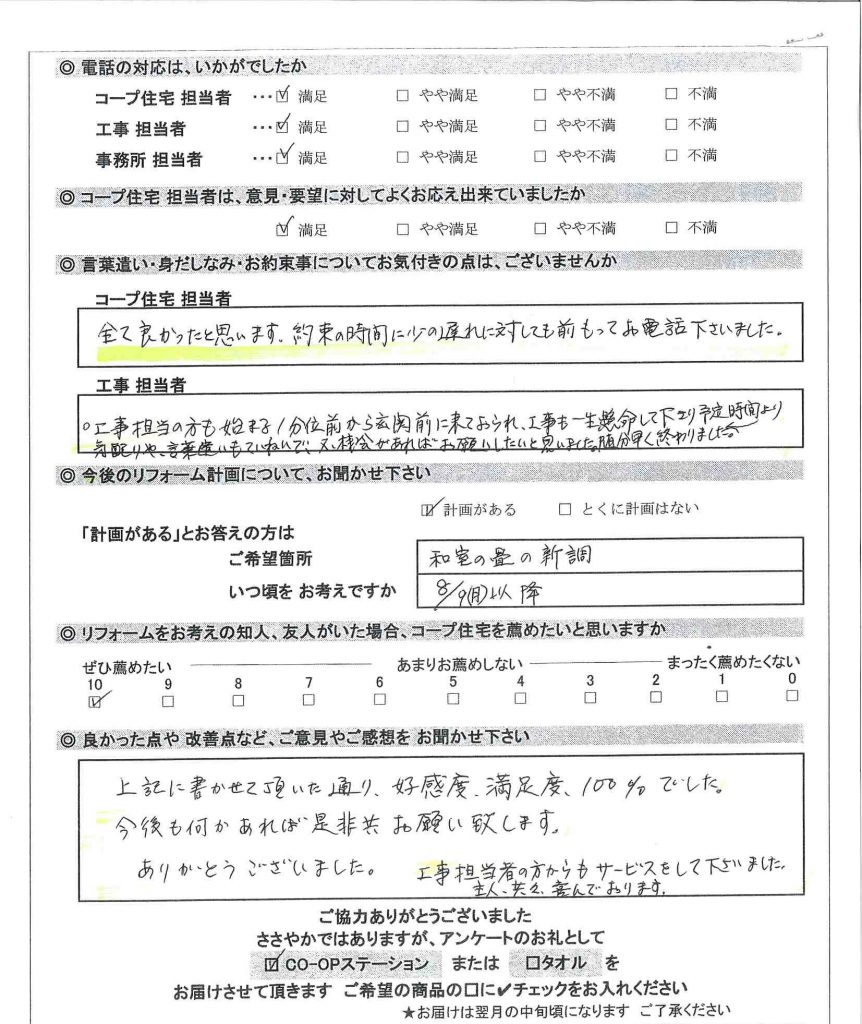 ◎ 電話の対応は、いかがでしたか
コープ住宅 担当者 …☑ 満足 □ やや満足 □ やや不満 □ 不満
工事 担当者 …☑ 満足 □ やや満足 □ やや不満 □ 不満
事務所 担当者 …☑ 満足 □ やや満足 □ やや不満 □ 不満
◎ コープ住宅 担当者は、意見・要望に対してよくお応え出来ていましたか
☑ 満足 □ やや満足 □ やや不満 □ 不満
◎ 言葉遣い・身だしなみ・お約束事についてお気付きの点は、ございませんか
コープ住宅 担当者
全て良かったと思います。約束の時間に少の遅れに対しても前もってお電話下さいました。
工事 担当者
○工事担当の方も始まる1分位前から玄関前に来ておられ、工事も一生懸命して下さり予定時間より
気配りや、言葉遣いもていねいで、又、機会があればお願いしたいと思いました。随分早く終わりました。
◎ 今後のリフォーム計画について、お聞かせ下さい
☑ 計画がある □ とくに計画はない
「計画がある」とお答えの方は
ご希望箇所 和室の畳の新調
いつ頃を お考えですか 8/9(月)以降
◎ リフォームをお考えの知人、友人がいた場合、コープ住宅を薦めたいと思いますか
ぜひ薦めたい あまりお薦めしない まったく薦めたくない
10 9 8 7 6 5 4 3 2 1 0
☑ □ □ □ □ □ □ □ □ □ □
◎ 良かった点や 改善点など、ご意見やご感想を お聞かせ下さい
上記に書かせて頂いた通り、好感度、満足度、100%でした。
今後も何かあれば是非共お願い致します。
ありがとうございました。 工事担当者の方からもサービスをして下さいました。
主人、共々、喜んでおります。
ご協力ありがとうございました
ささやかではありますが、アンケートのお礼として
☑ CO-OPステーション または □タオル を
お届けさせて頂きます ご希望の商品の□に✔チェックをお入れください
★お届けは翌月の中旬頃になります ご了承ください